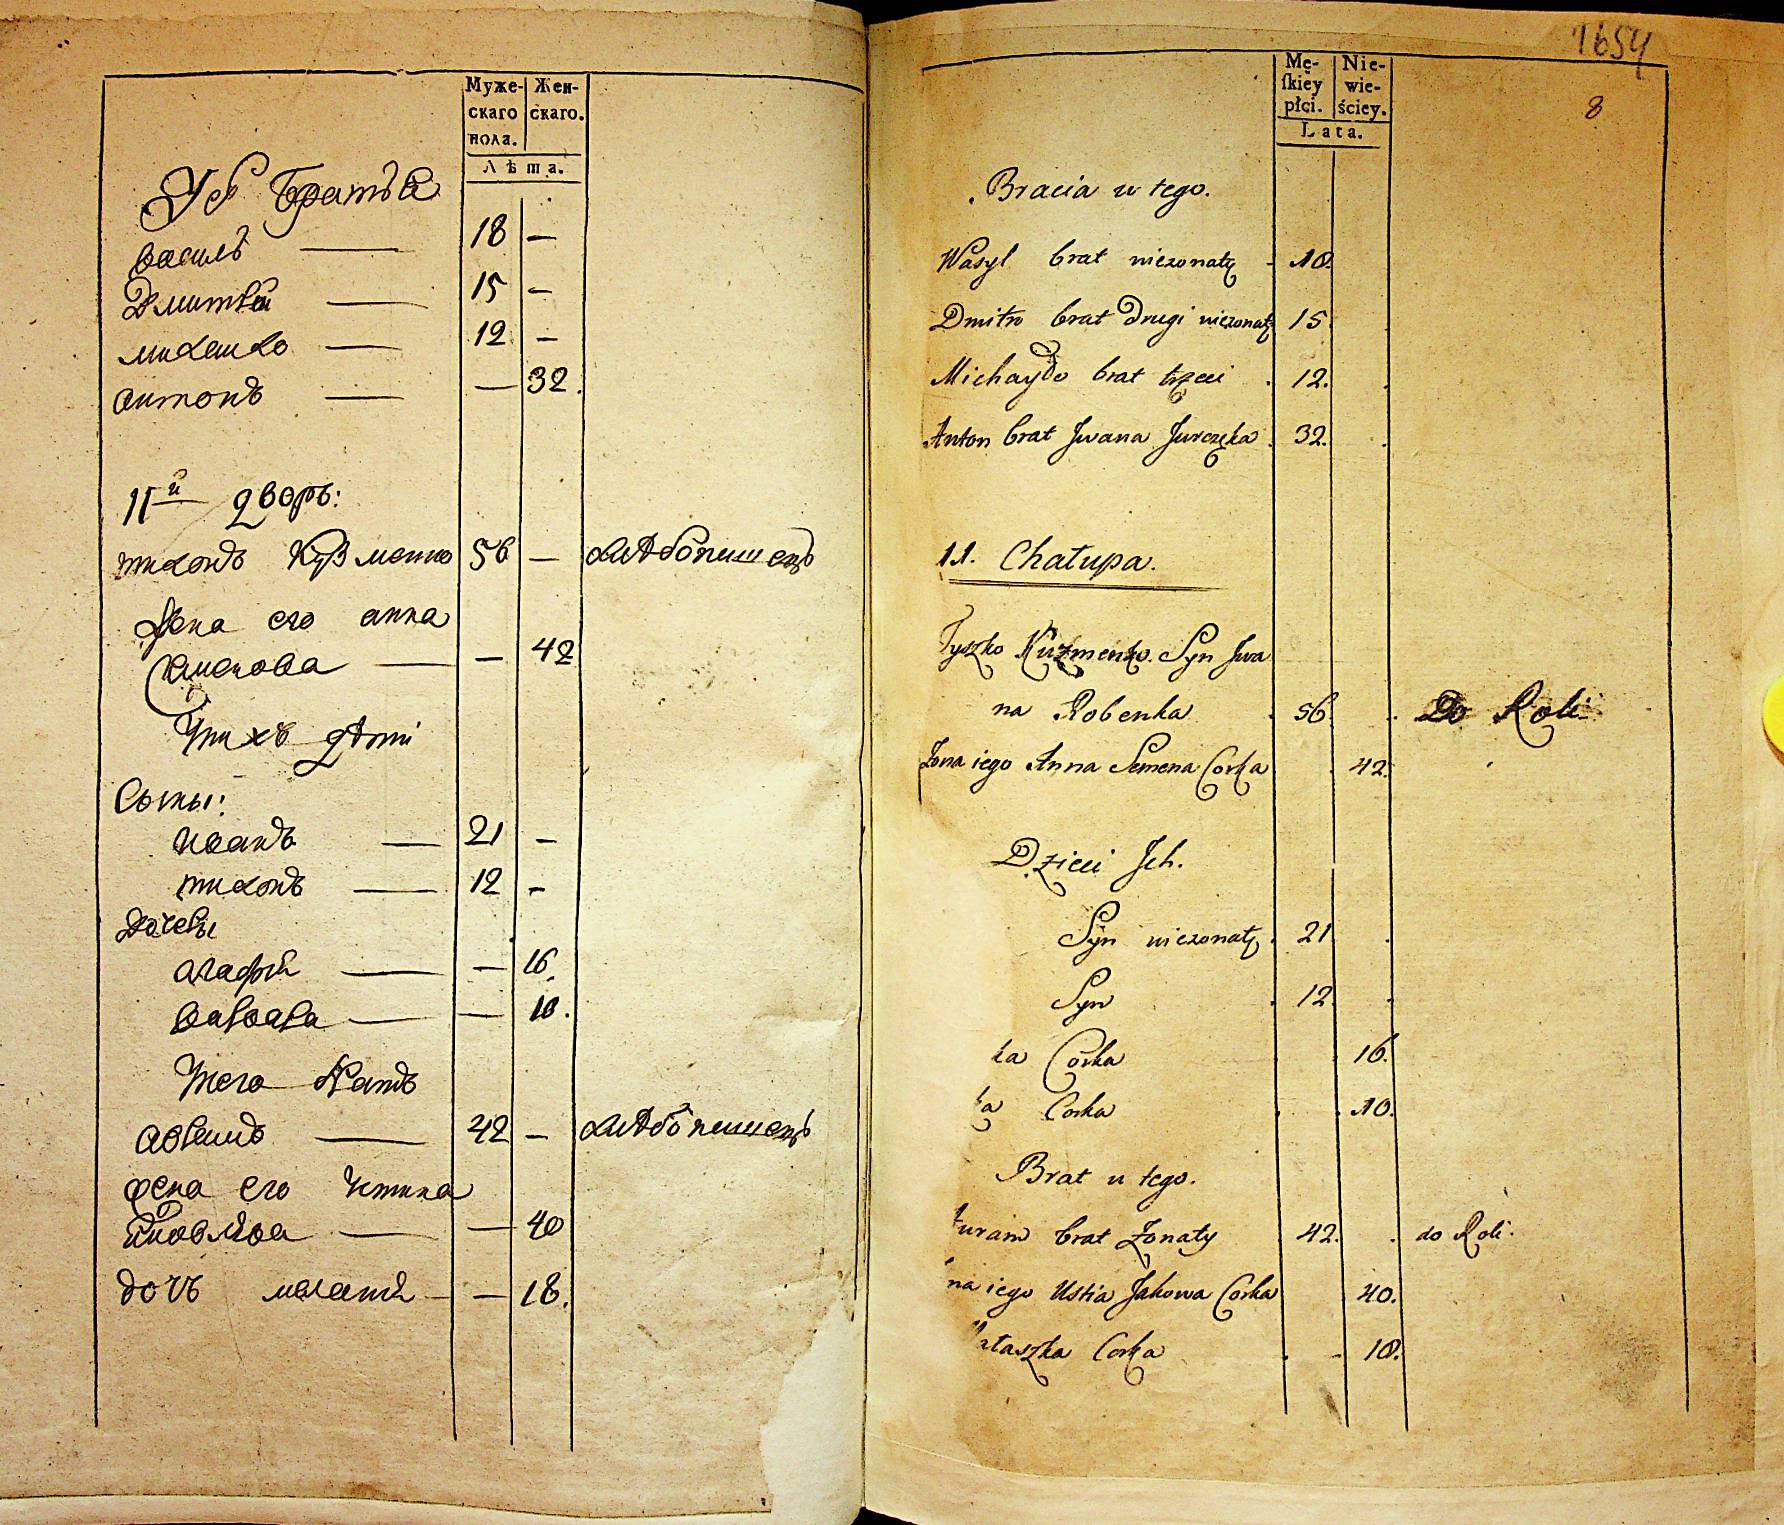 Муже- Жен-
скаго скаго.
пола.
Лѣта.
Братья
василь — 18 —
Дмитрей — 15 —
михайло — 12 —
антонъ — — 32.
11й дворъ:
тихонъ Кузменко 56 — хлѣбопашецъ
Жена его анна
семенова — — 42
Ихъ дѣти
Сыны:
иванъ — 21 —
тихонъ — 12 —
Дочери
агафия — — 16.
варвара — — 10.
братъ
42 — хлѣбопашецъ
жена его устина
Яковлева — — 40
дочъ — — 18.
1654
Mę- Nie-
skiey wie-
płci. ściey.
Lata.
8
Bracia u tego.
Wasyl brat nieżonaty 18.
Dmitro brat drugi nieżonaty 15
Michayło brat trzeci 12.
Anton brat Jwana Jurczęka 32.
11. Chałupa.
Tyszko Kuzmenko Syn Jwa
na Robenka 56. Do Roli
Żona iego Anna Semena Corka 42.
Dzieci Jch.
Syn nieżonaty 21
Syn 12.
ka Corka 16.
ka Corka 10.
Brat u tego.
brat Żonaty 42. do Roli.
na iego Ustia Jakowa Corka 40.
ataszka Corka 18.